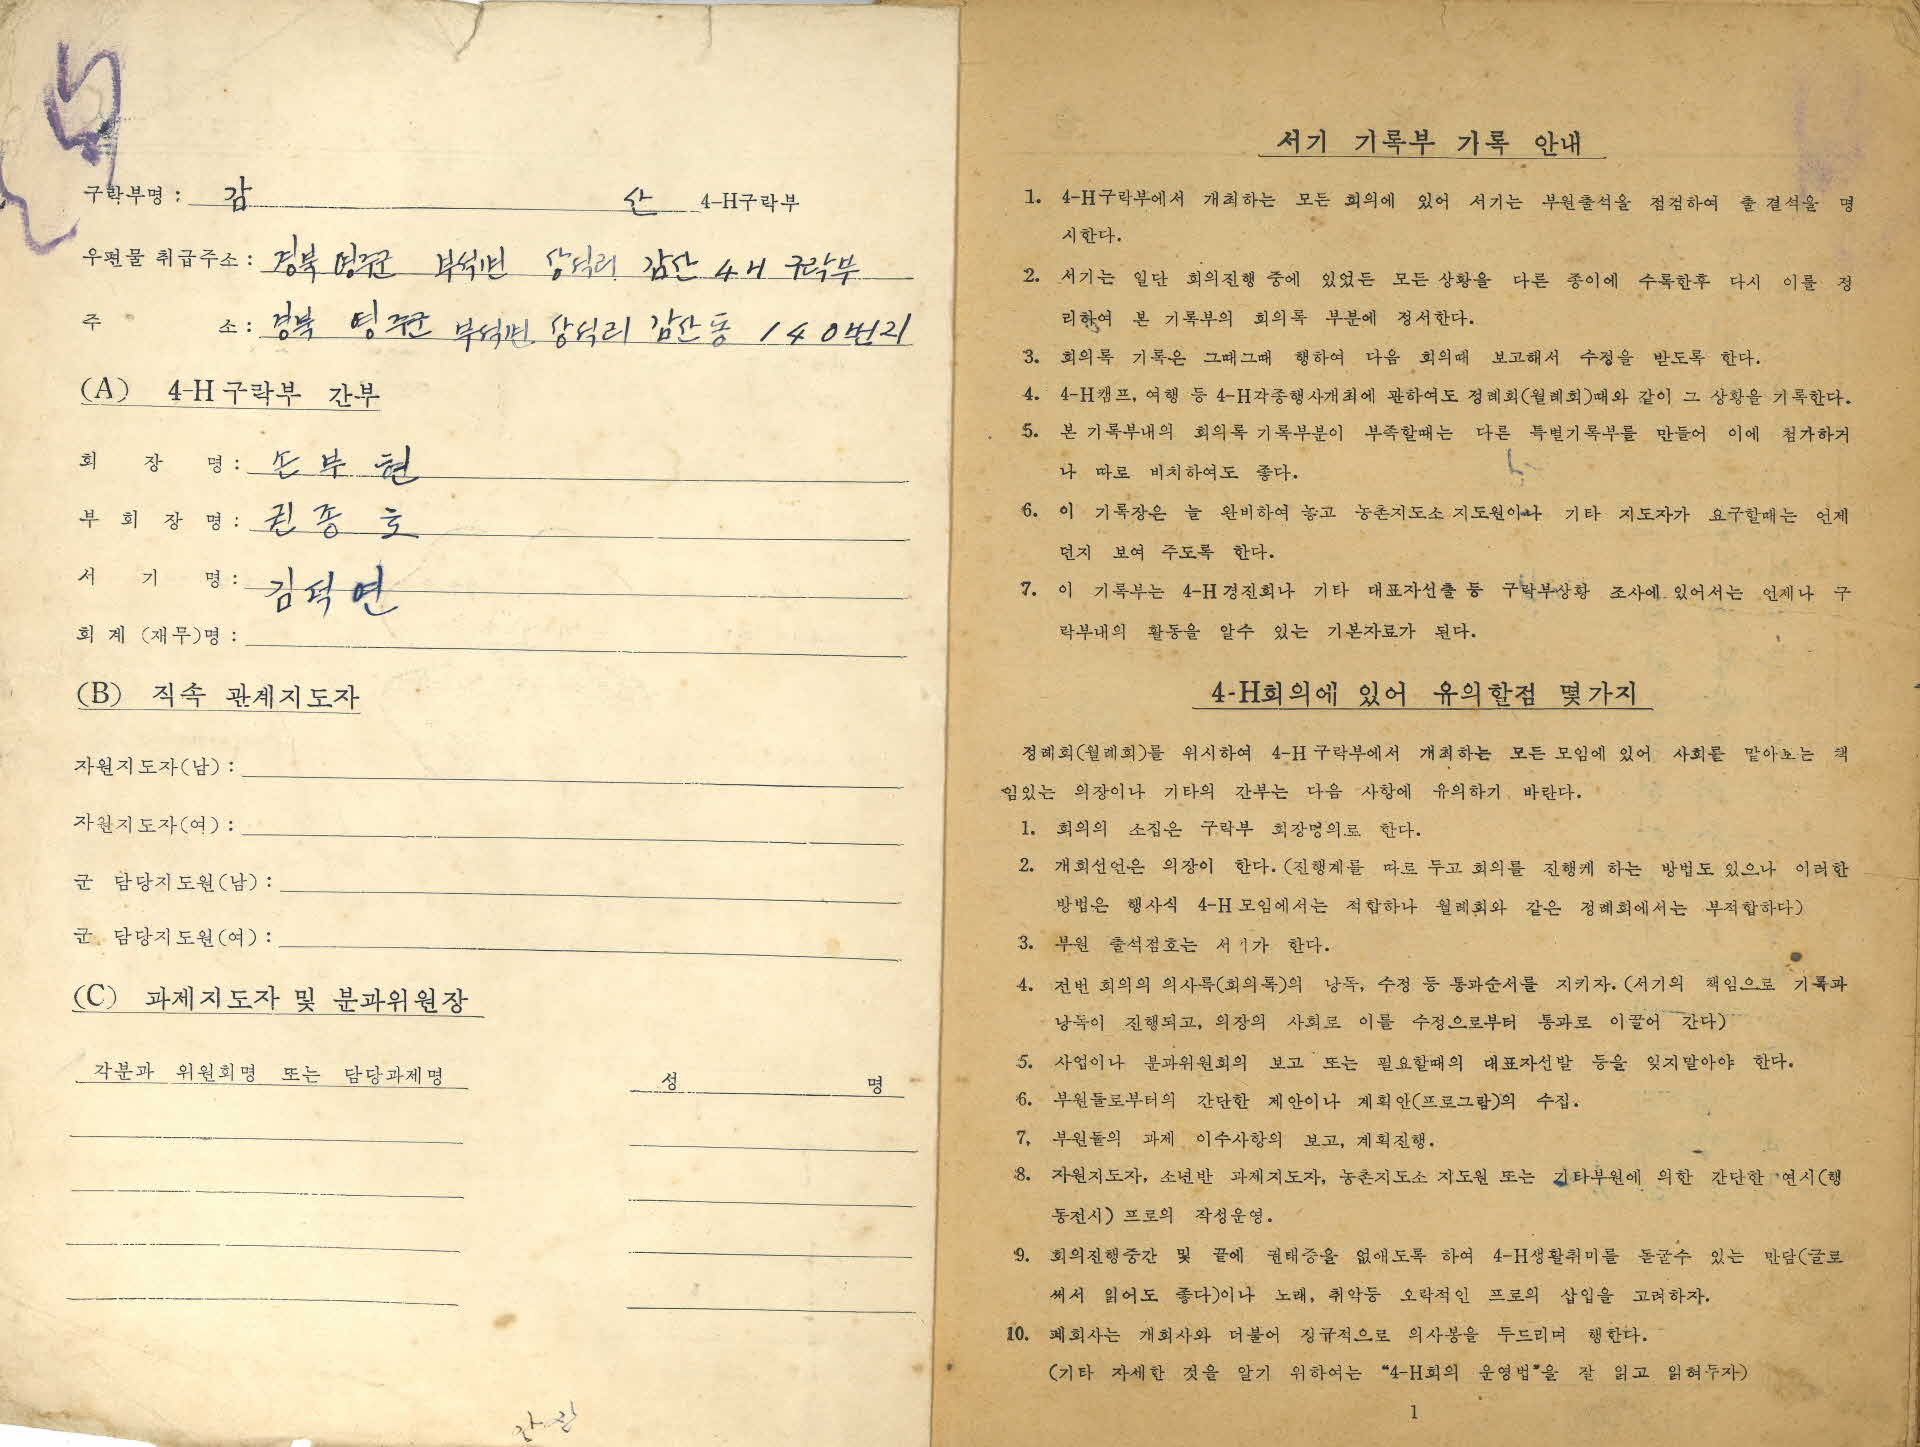 구락부명 : 감 산 4-H구락부
우편물 취급주소 : 경북 영주군 부석면 상석리 감산 4H 구락부
주 소 : 경북 영주군 부석면 상석리 감산동 140번지
(A) 4-H구락부 간부
회 장 명 : 손부현
부 회 장 명 : 권종호
서 기 명 : 김석연
회 계 (재무)명 :
(B) 직속 관계지도자
자원지도자(남) :
자원지도자(여) :
군 담당지도원(남) :
군 담당지도원(여) :
(C) 과제지도자 및 분과위원장
각분과 위원회명 또는 담당과제명 성 명
서기 기록부 기록 안내
1. 4-H구락부에서 개최하는 모든 회의에 있어 서기는 부원출석을 점검하여 출결석을 명
시한다.
2. 서기는 일단 회의진행 중에 있었든 모든 상황을 다른 종이에 수록한후 다시 이를 정
리하여 본 기록부의 회의록 부분에 정서한다.
3. 회의록 기록은 그때그때 행하여 다음 회의때 보고해서 수정을 받도록 한다.
4. 4-H캠프, 여행 등 4-H각종행사개최에 관하여도 정례회(월례회)때와 같이 그 상황을 기록한다.
5. 본 기록부내의 회의록 기록부분이 부족할때는 다른 특별기록부를 만들어 이에 첨가하거
나 따로 비치하여도 좋다.
6. 이 기록장은 늘 완비하여 놓고 농촌지도소 지도원이나 기타 지도자가 요구할때는 언제
던지 보여 주도록 한다.
7. 이 기록부는 4-H경진회나 기타 대표자선출 등 구락부상황 조사에 있어서는 언제나 구
락부내의 활동을 알수 있는 기본자료가 된다.
4-H회의에 있어 유의할점 몇가지
정례회(월례회)를 위시하여 4-H구락부에서 개최하는 모든 모임에 있어 사회를 맡아보는 책
임있는 의장이나 기타의 간부는 다음 사항에 유의하기 바란다.
1. 회의의 소집은 구락부 회장명의로 한다.
2. 개회선언은 의장이 한다.(진행계를 따로 두고 회의를 진행케 하는 방법도 있으나 이러한
방법은 행사식 4-H모임에서는 적합하나 월례회와 같은 정례회에서는 부적합하다)
3. 부원 출석점호는 서기가 한다.
4. 전번 회의의 의사록(회의록)의 낭독, 수정 등 통과순서를 지키자.(서기의 책임으로 기록과
낭독이 진행되고, 의장의 사회로 이를 수정으로부터 통과로 이끌어 간다)
5. 사업이나 분과위원회의 보고 또는 필요할때의 대표자선발 등을 잊지말아야 한다.
6. 부원들로부터의 간단한 제안이나 계획안(프로그람)의 수집.
7. 부원들의 과제 이수사항의 보고, 계획진행.
8. 자원지도자, 소년반 과제지도자, 농촌지도소 지도원 또는 기타부원에 의한 간단한 연시(행
동전시) 프로의 작성운영.
9. 회의진행중간 및 끝에 권태증을 없애도록 하여 4-H생활취미를 돋굴수 있는 만담(글로
써서 읽어도 좋다)이나 노래, 취악등 오락적인 프로의 삽입을 고려하자.
10. 폐회사는 개회사와 더불어 정규적으로 의사봉을 두드리며 행한다.
(기타 자세한 것을 알기 위하여는 "4-H회의 운영법"을 잘 읽고 읽혀두자)
1